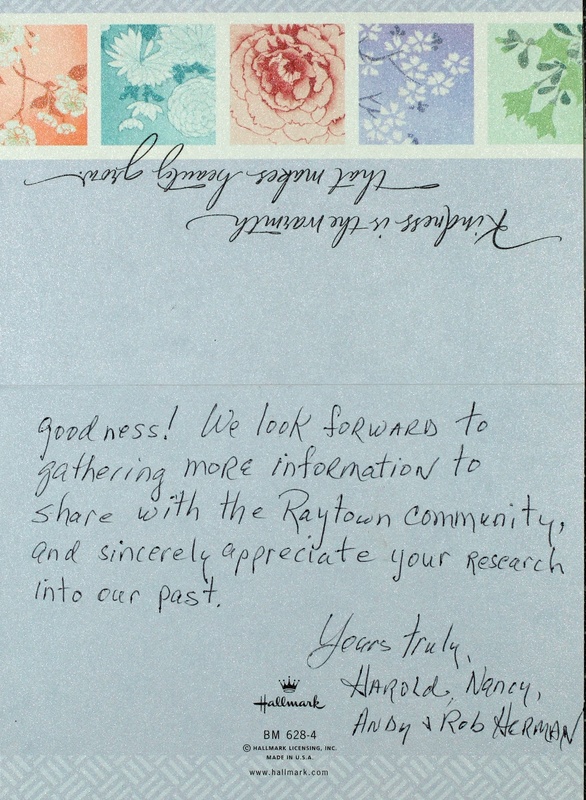 Kindness is the warmth
that makes beauty grow.
goodness! We look forward to
gathering more information to
share with the Raytown community,
and sincerely appreciate your research
into our past.
Yours truly,
Harold, Nancy,
Andy & Rob Herman
Hallmark
BM 628-4
© HALLMARK LICENSING, INC.
MADE IN U.S.A.
www.hallmark.com